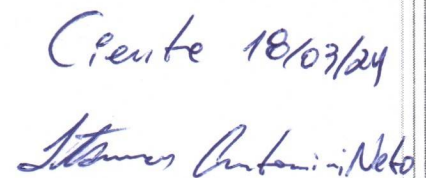 Ciente 18/03/24
Antonini Neto